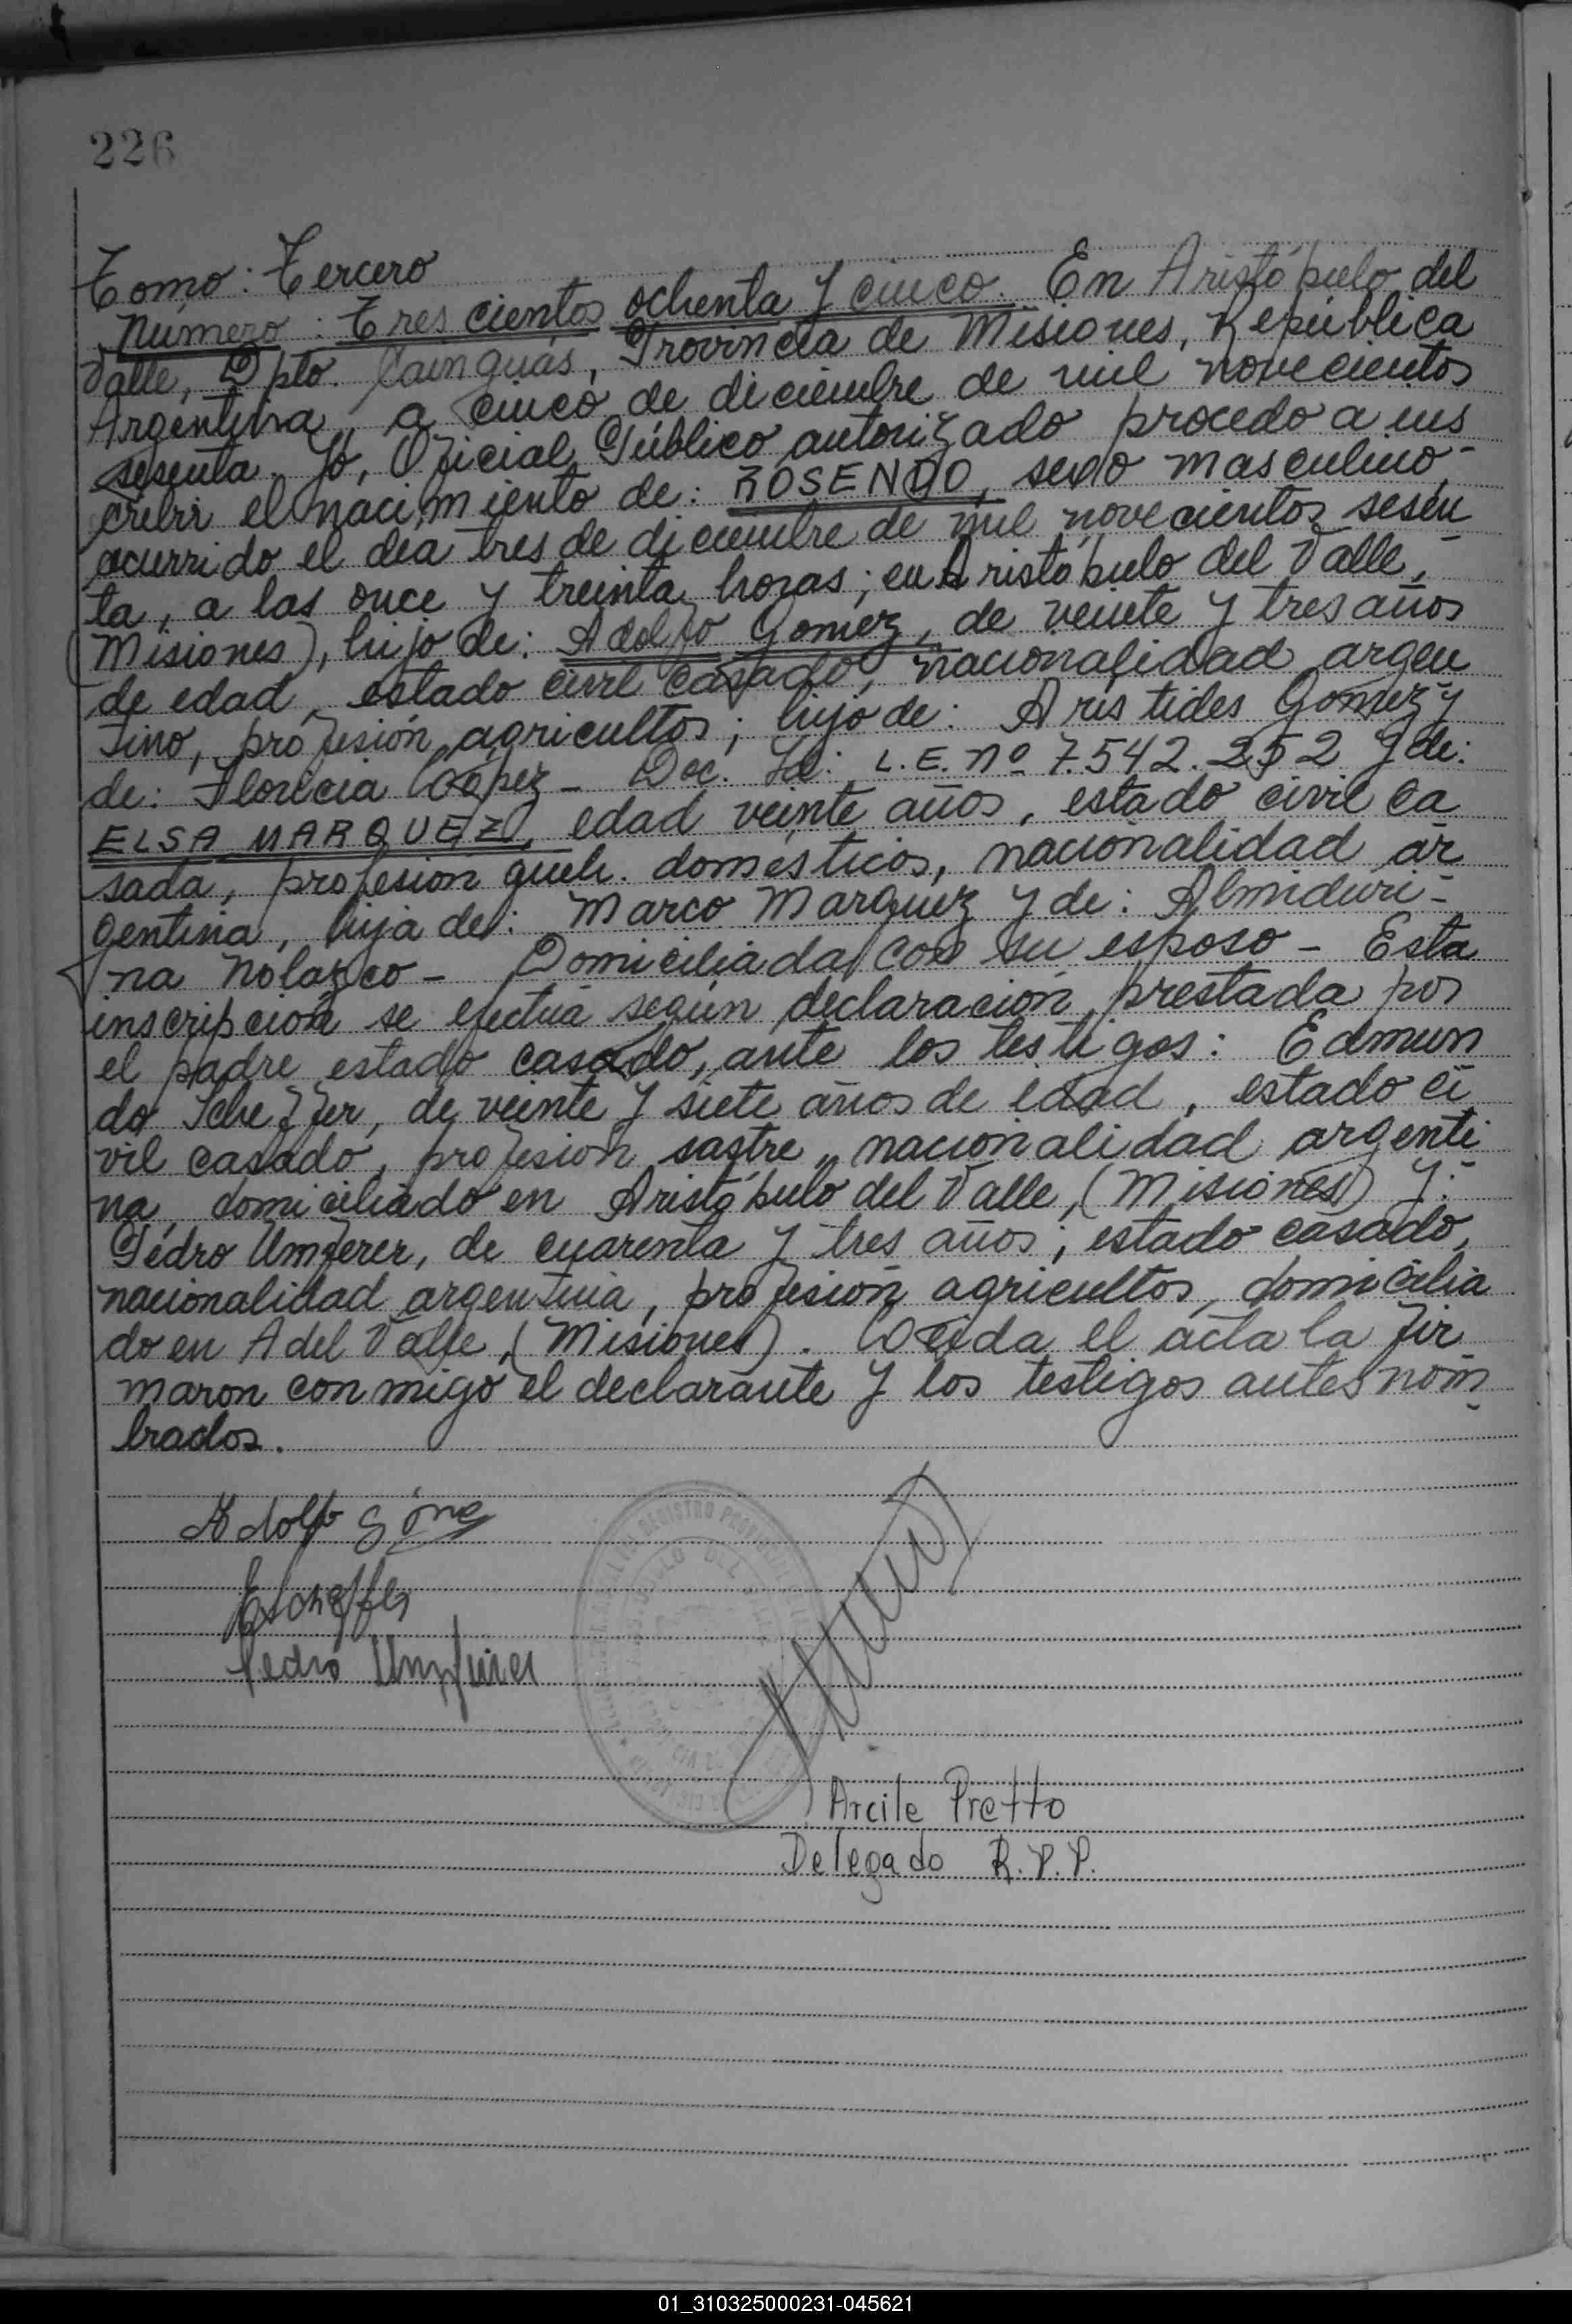 226
Tomo: Tercero
Número: Tres cientos ochenta y cinco. En Aristóbulo del
Valle, Dpto. Cainguás, Provincia de Misiones, República
Argentina, a cinco de diciembre de mil novecientos
sesenta. Yo, Oficial Público autorizado procedo a ins
cribir el nacimiento de: ROSENDO, sexo masculino,
ocurrido el día tres de diciembre de mil novecientos sesen
ta, a las once y treinta horas; en Aristóbulo del Valle,
(Misiones), hijo de: Adolfo Gomez, de veinte y tres años
de edad, estado civil casado, nacionalidad argen
tino, profesión agricultor; hijo de: Aristides Gomez y
de: Floricia López - Doc. Id: L.E. nº 7.542.252 y de:
ELSA MARQUEZ, edad veinte años, estado civil ca
sada, profesión queh. domésticos, nacionalidad ar
gentina, hija de: Marco Marquez y de: Almiduri-
na Nolazco - Domiciliada con su esposo - Esta
inscripción se efectúa según declaración prestada por
el padre estado casado, ante los testigos: Edmun
do Scheffer, de veinte y siete años de edad, estado ci
vil casado, profesión sastre, nacionalidad argenti
na, domiciliado en Aristóbulo del Valle, (Misiones) y:
Pedro Umferer, de cuarenta y tres años; estado casado,
nacionalidad argentina, profesión agricultor, domicilia
do en A del Valle, (Misiones). Leida el acta la fir
maron conmigo el declarante y los testigos antes nom
brados.
Adolfo Góme
EScheffer
Pedro Umfurer
Arcile Pretto
Delegado R.P.P.
01_310325000231-045621